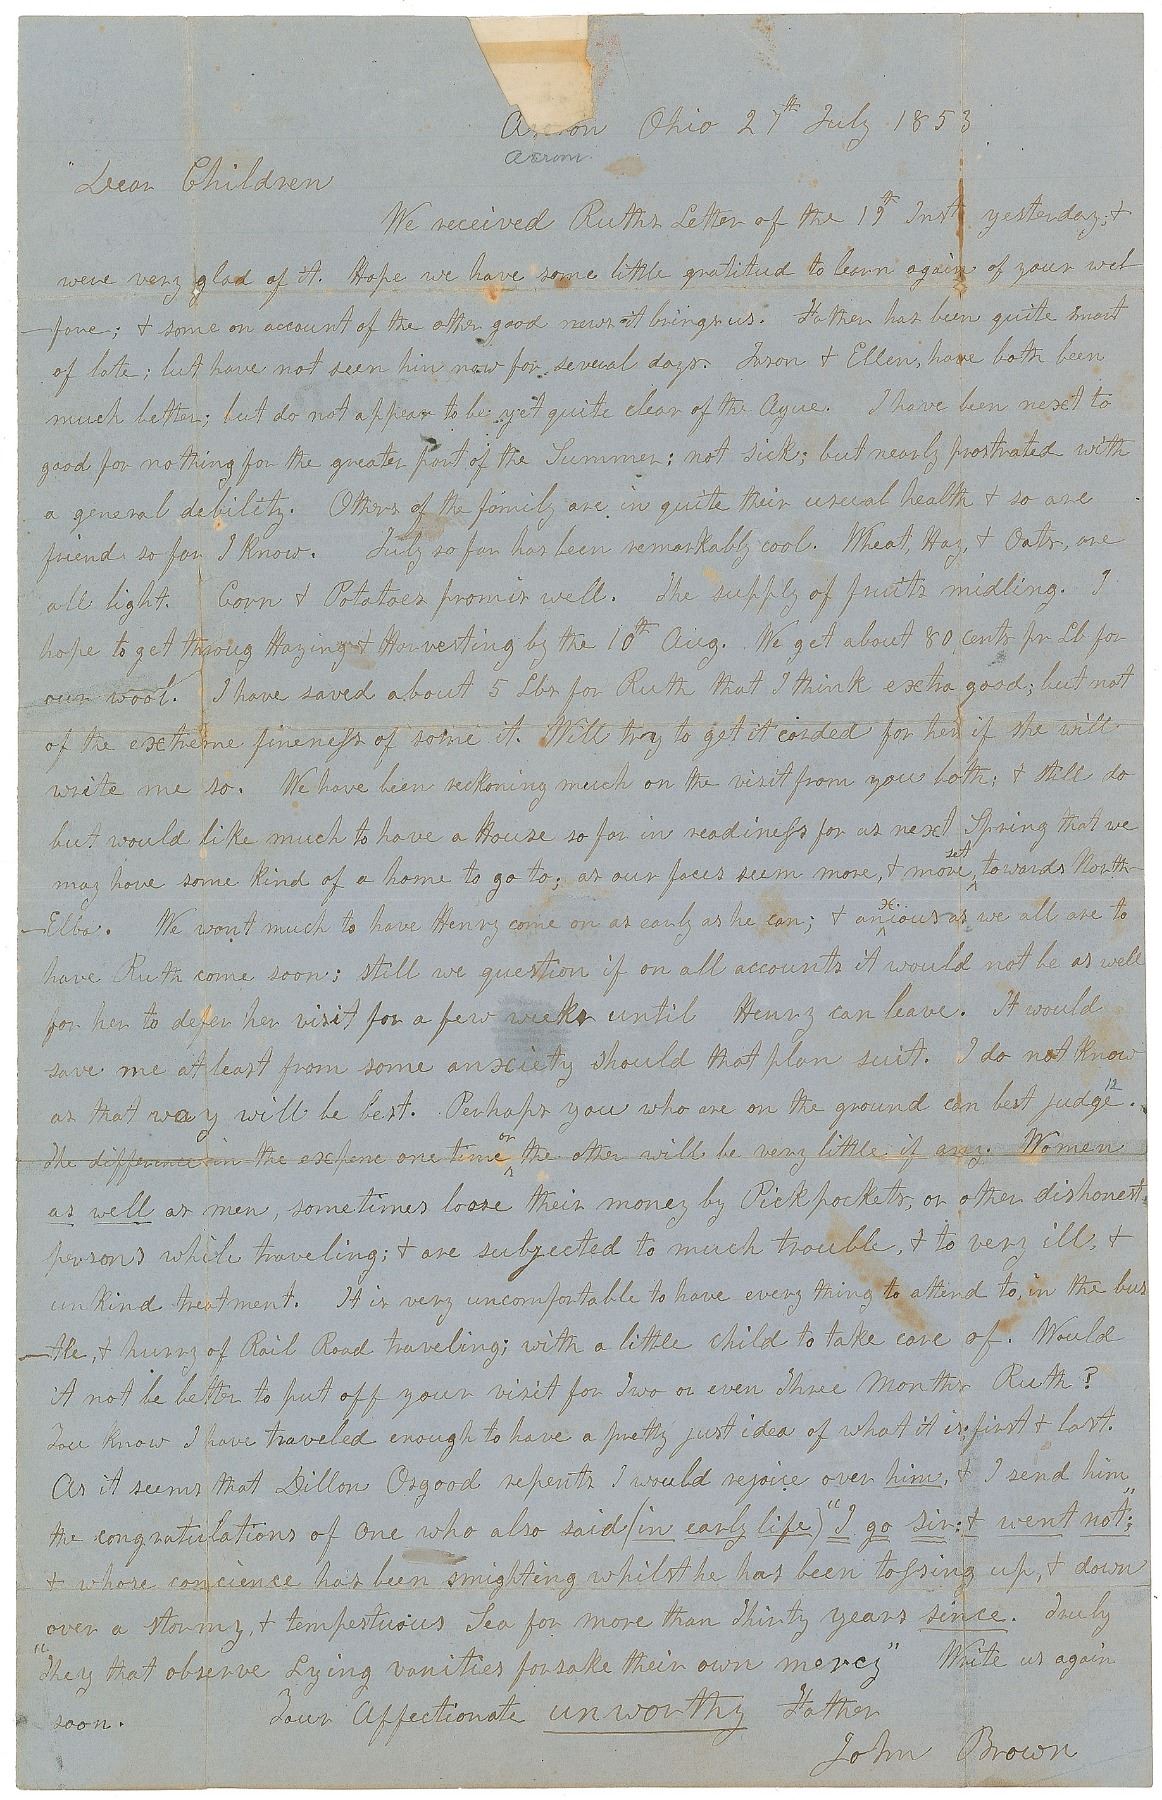 Akron Ohio 27th July 1853
Akron
Dear Children
We received Ruths Letter of the 19th Inst yesterday; &
were very glad of it. Hope we have some little gratitud to learn again of your wel
-fare; & some on account of the other good news it brings us. Father has been quite smart
of late; but have not seen him now for several days. Jason & Ellen, have both been
much better; but do not appear to be yet quite clear of the Ague. I have been next to
good for nothing for the greater part of the Summer; not sick; but nearly prostrated with
a general debility. Others of the family are in quite their usual health & so are
friends so far I know. July so far has been remarkably cool. Wheat, Hay, & Oats, are
all light. Corn & Potatoes promis well. The supply of fruits midling. I
hope to get throug Haying & Harvesting by the 10th Aug. We get about 80 cents pr Lb for
our wool. I have saved about 5 Lbs for Ruth that I think extra good; but not
of the extreme fineness of some it. Will try to get it carded for her if she will
write me so. We have been reckoning much on the visit from you both; & still do
but would like much to have a House so far in readiness for as next Spring that we
may have some kind of a home to go to; as our faces seem more, & more set towards North
-Elba. We want much to have Henry come on as early as he can; & anxious as we all are to
have Ruth come soon; still we question if on all accounts it would not be as well
for her to defer her visit for a few weeks until Henry can leave. It would
save me at least from some anxiety should that plan suit. I do not know
as that way will be best. Perhaps you who are on the ground can best judge.
12
The difference in the expence one time or the other will be very little if any. Women
as well as men, sometimes loose their money by Pickpockets, or other dishonest
persons while traveling; & are subjected to much trouble, & to very ill, &
unkind treatment. It is very uncomfortable to have every thing to attend to, in the bus
-tle, & hurry of Rail Road traveling; with a little child to take care of. Would
it not be better to put off your visit for Two or even Three Months Ruth?
You know I have traveled enough to have a pretty just idea of what it is, first & last.
As it seems that Dillon Osgood repents I would rejoice over him, & I send him
the congratulations of one who also said (in early life) "I go sir; & went not";
& whose concience has been smighting whilst he has been tossing up, & down
over a stormy, & tempestuious Sea for more than Thirty years since. Truly
"They that observe Lying vanities forsake their own mercy" Write us again
soon. Your Affectionate unworthy Father
John Brown